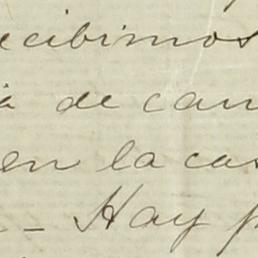 ecibimos
a de can
en la cas
- Hay p